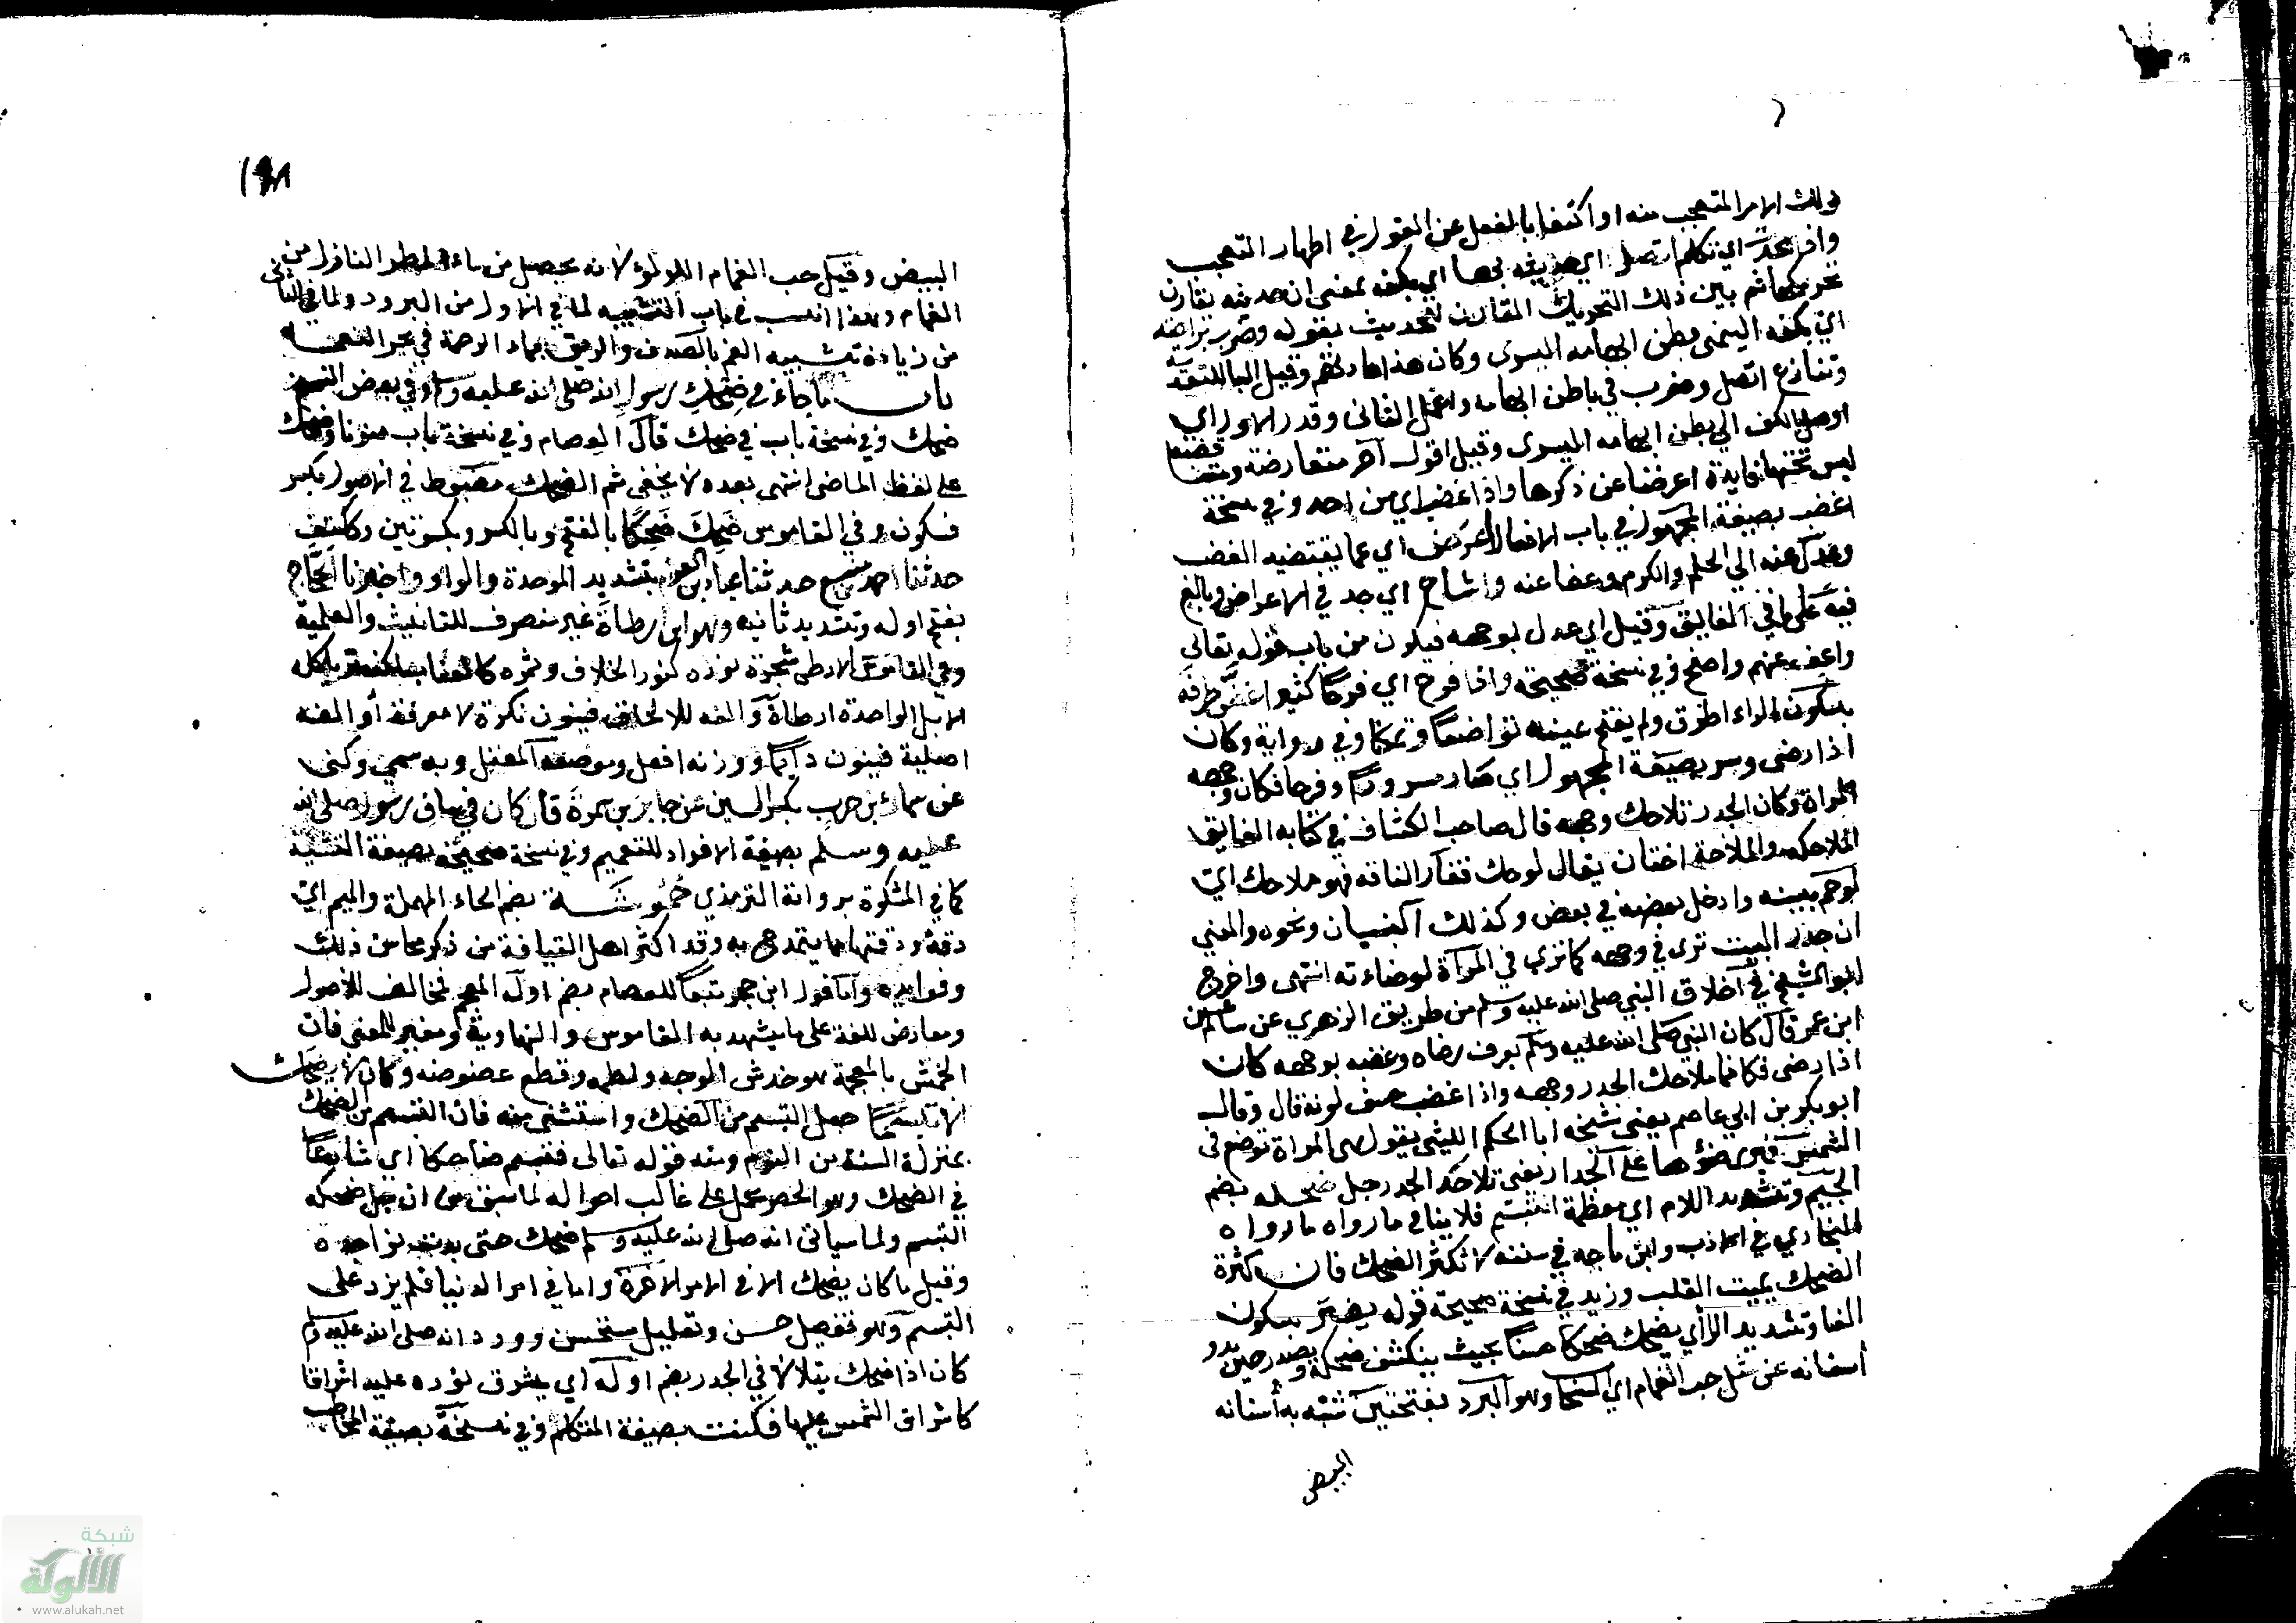 ذلك الامر المتعجب منه او اكتفا بالفعل عن القول في اظهار التعجب
واذا تحدث اي تكلم اتصل اي حديثه بها اي بكفه بمعنى ان حديثه يقارن
تحريكها ثم بين ذلك التحريك المقارن للحديث بقوله وضرب براحته
اي بكفه اليمنى بطن ابهامه اليسرى وكان هذا عادتهم وقيل الباء للتعدية
وتنازع اتصل وضرب في باطن ابهامه واعمل الثاني وقدر الاول اي
اوصل الكف الى بطن ابهامه اليسرى وقيل اقوال آخر متعارضة
ليس تحتها فايدة اعرضنا عن ذكرها واذا غضب اي من احد وفي نسخة
اغضب بصيغة المجهول في باب الافعال اعرض اي عما يقتضيه الغضب
وعدل عنه الى الحلم والكرم وعفا عنه واشاح اي جد في الاعراض وبالغ
فيه على ما في الفايق وقيل اي عدل بوجهه فيكون من باب قوله تعالى
واعف عنهم واصفح وفي نسخة صحيحة واذا فرح اي فرحا كثيرا غض طرفه
بسكون الراء اطرق ولم يفتح عينيه تواضعا وتمكنا وفي رواية وكان
اذا رضي وسر بصيغة المجهول اي صار مسرورا وفرحا فكان وجهه
المراة وكان الجدر تلاحك وجهه قال صاحب الكشاف في كتابه الفايق
الملاحكة والملاحمة اختان يقال لوحك فقار الناقة فهو ملاحك اي
لوحم بينه وادخل بعضه في بعض وكذلك البنيان ونحوه والمعنى
ان جدر البيت ترى في وجهه كما ترى في المرآة لوضاءته انتهى واخرج
ابو الشيخ في اخلاق النبي صلى الله عليه وسلم من طريق الزهري عن سالم عن
ابن عمر قال كان النبي صلى الله عليه وسلم يعرف رضاه وغضبه بوجهه كان
اذا رضي فكانما ملاحك الجدر وجهه واذا غضب خسف لونه قال وقال
ابو بكر بن ابي عاصم يعني شيخه ابا الحكم الليثي يقول هي المراة توضع في
الشمس فيرى ضوءها على الجدار يعني تلاحك الجدر جل ضحكه بضم
الجيم وتشديد اللام اي معظمه التبسم فلا ينافي ما رواه ما رواه
البخاري في الادب وابن ماجه في سننه لا تكثر الضحك فان كثرة
الضحك يميت القلب وزيد في نسخة صحيحة قوله يفتر بسكون
الفا وتشديد الراء اي يضحك ضحكا حسنا بحيث ينكشف ضحكه ويصدر حين يبدو
اسنانه عن مثل حب الغمام اي السحاب وهو البرد بفتحتين شبه به أسنانه
البيض
١٩٨
البيض وقيل حب الغمام اللولؤ لانه يحصل من ماء المطر النازل من
الغمام وهذا انسب في باب التشبيه لما في الاول من البرود ولما في الثاني
من زيادة تشبيه الفم بالصدف والريق بماء الرحمة في بحر النعمة
باب ما جاء في ضحك رسول الله صلى الله عليه وسلم وفي بعض النسخ
ضحك وفي نسخة باب في ضحك قال العصام وفي نسخة باب منونا وضحك
على لفظ الماضي انتهى بعده لا يخفى ثم الضحك مضبوط في الاصول بكسر
فسكون وفي القاموس ضَحِكَ ضَحِكًا بالفتح وبالكسر وبكسرتين وككتف
حدثنا احمد بن منيع حدثنا عباد بن العوام بتشديد الموحدة والواو واخبرنا الحجاج
بفتح اوله وتشديد ثانيه وهو ابن ارطاة غير منصرف للتانيث والعلمية
وفي القاموس الارطى شجرة نوره كنور الخلاف وثمره كالعناب تاكله
الابل الواحدة ارطاة والفه للالحاق فينون نكرة لا معرفة أو الفه
اصلية فينون دايما ووزنه افعل وموضعه المعتل وبه سمي وكني
عن سماك بن حرب بكسر السين عن جابر بن سمرة قال كان في ساق رسول الله صلى الله
عليه وسلم بصيغة الافراد للتعميم وفي نسخة صحيحة بصيغة التثنية
كما في المشكوة برواية الترمذي حموشة بضم الحاء المهملة والميم اي
دقة ودقتها مما يتمدح به وقد اكثر اهل القيافة من ذكر محاسن ذلك
وفوايده واما قول ابن حجر تبعا للعصام بضم اول المعجم فمخالف للاصول
ومعارض للغة على ما يشهد به القاموس والنهاية ومغير للمعنى فان
الخمش بالمعجمة هو خدش الوجه ولطمه وقطع عضو منه وكان لا يضحك
الا تبسما جعل التبسم من الضحك واستثنى منه فان التبسم من الضحك
بمنزلة السنة من النوم ومنه قوله تعالى فتبسم ضاحكا اي شارعا
في الضحك وهو الحصر يحمل على غالب احواله لما سبق من ان جل ضحكه
التبسم ولما سياتي انه صلى الله عليه وسلم ضحك حتى بدت نواجذه
وقيل ما كان يضحك الا في الامر الآخرة واما في امر الدنيا فلم يزد على
التبسم وهو تفصيل حسن وتعليل مستحسن وورد انه صلى الله عليه وسلم
كان اذا ضحك يتلألأ في الجدر بضم اوله اي يشرق نوره عليه اشراقا
كاشراق الشمس عليها فكنت بصيغة المتكلم وفي نسخة بصيغة المخاطب
شبكة
الألوكة
www.alukah.net